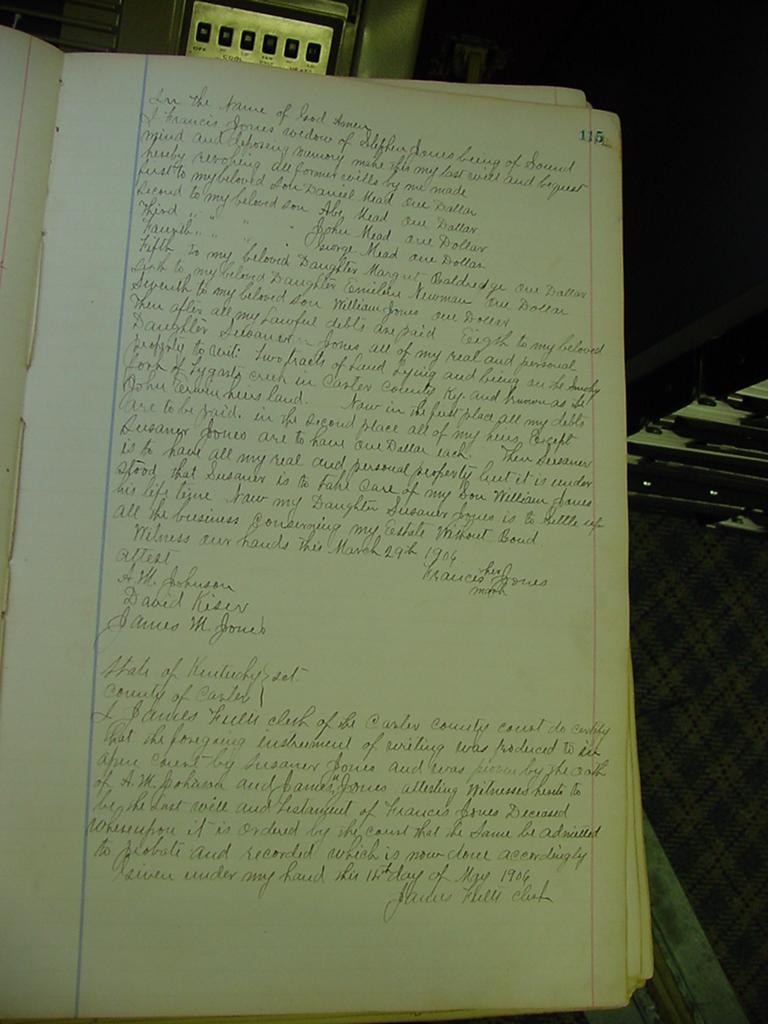 115
In the Name of God Amen
I Francis Jones widow of Stephen Jones being of Sound
mind and disposing memory make this my last will and bequest
hereby revoking all former wills by me made
first to my beloved Son Daniel Mead One Dollar
Second to my beloved son Abe Mead One Dollar
Third " " " John Mead one Dollar
Fourth " " " George Mead one Dollar
Fifth to my beloved Daughter Margret Baldredge One Dollar
Sixth to my beloved Daughter Emiline Newman One Dollar
Seventh to my beloved son William Jones one Dollar
Then after all my Lawful debts are paid Eigth to my beloved
Daughter Susaner Jones all of my real and personal
property to wit: two tracts of Land Lying and being on the Smoky
fork of Tygarts creek in Carter County Ky and known as the
John Erwin heirs land. Now in the first place all my debts
are to be paid. in the second place all of my heirs Except
Susaner Jones are to have one Dollar each. Then Susaner
is to have all my real and personal property but it is under
stood that Susaner is to take care of my Son William Jones
his life time Now my Daughter Susaner Jones is to settle up
all the business conserning my Estate Without Bond.
Witness our hands this March 29th 1906
Attest
Francis her Jones
mark
A. M. Johnson
David Kiser
James M. Jones
State of Kentucky } sct.
County of Carter
I James clerk of the Carter County court do certify
that the foregoing instrument of writing was produced to in
open court by Susaner Jones and was proven by the oath
of A. M. Johnson and James M Jones attesting Witnesses hereto to
be the Last will and testament of Francis Jones Deceased
Whereupon it is ordered by the court that the same be admitted
to probate and recorded which is now done accordingly
Given under my hand this day of May 1906
James clerk